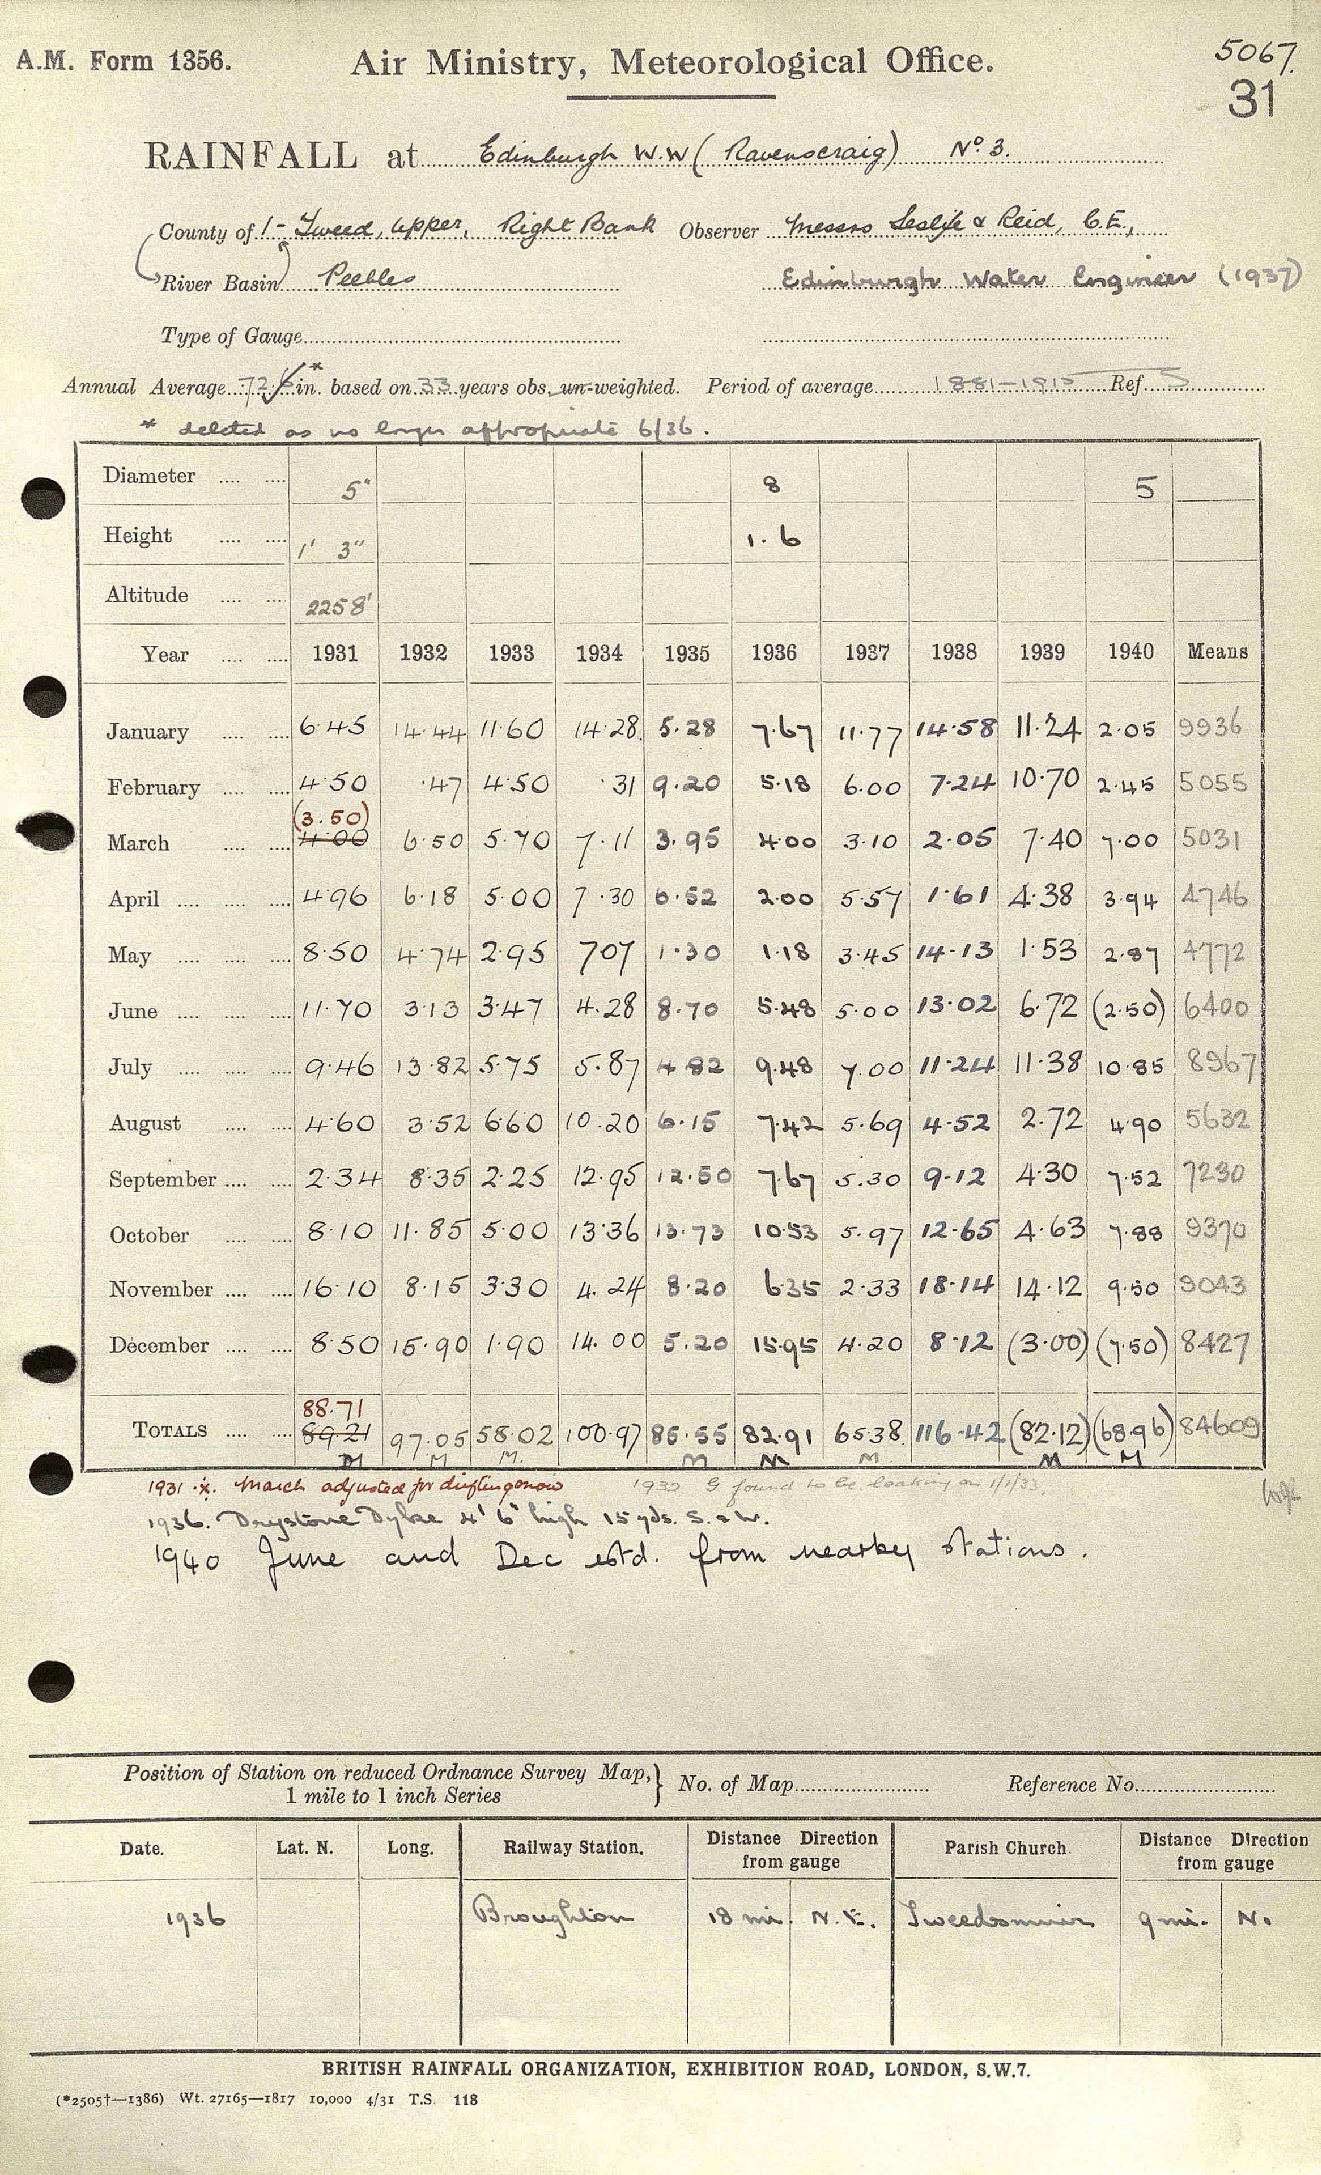 A.M. Form 1356. Air Ministry, Meteorological Office. 5067.
31
RAINFALL at Edinburgh W.W (Ravenscraig) No 3.
County of 1 - Tweed, Upper, Right Bank Observer Messrs Leslie & Reid, C.E.,
River Basin Peebles Edinburgh Water Engineer (1937)
Type of Gauge
Annual Average 72. in. based on 33 years obs. un-weighted. Period of average 1881-1915 Ref. 5
* deleted as no longer appropriate 6/36.
Diameter 5" 8 5
Height 1' 3" 1.6
Altitude 2258'
Year 1931 1932 1933 1934 1935 1936 1937 1938 1939 1940 Means
January 6.45 14.44 11.60 14.28 5.28 7.67 11.77 14.58 11.24 2.05 9936
February 4.50 .47 4.50 .31 9.20 5.18 6.00 7.24 10.70 2.45 5055
(3.50)
March 4.00 6.50 5.70 7.11 3.95 4.00 3.10 2.05 7.40 7.00 5031
April 4.96 6.18 5.00 7.30 6.52 2.00 5.57 1.61 4.38 3.94 4746
May 8.50 4.74 2.95 707 1.30 1.18 3.45 14.13 1.53 2.87 4772
June 11.70 3.13 3.47 4.28 8.70 5.48 5.00 13.02 6.72 (2.50) 6400
July 9.46 13.82 5.75 5.87 4.82 9.48 7.00 11.24 11.38 10.85 8967
August 4.60 3.52 6.60 10.20 6.15 7.42 5.69 4.52 2.72 4.90 5632
September 2.34 8.35 2.25 12.95 12.50 7.67 5.30 9.12 4.30 7.52 7230
October 8.10 11.85 5.00 13.36 13.73 10.53 5.97 12.65 4.63 7.88 9370
November 16.10 8.15 3.30 4.24 8.20 6.35 2.33 18.14 14.12 9.50 9043
December 8.50 15.90 1.90 14.00 5.20 15.95 4.20 8.12 (3.00) (7.50) 8427
88.71
TOTALS 89.21 97.05 58.02 100.97 85.55 82.91 65.38 116.42 (82.12) (68.96) 84609
M M M. M M M M M
1931 .x. March adjusted for drifting snow 1932 G found to be leaking on 1/1/33
1936. Drystone Dyke 4' 6" high 15 yds. S. & W.
1940 June and Dec estd. from nearby stations.
Position of Station on reduced Ordnance Survey Map, 1 mile to 1 inch Series } No. of Map Reference No.
Date. Lat. N. Long. Railway Station. Distance Direction from gauge Parish Church. Distance Direction from gauge
1936 Broughton 18 mi. N.E. Tweedsmuir 9 mi. N.
BRITISH RAINFALL ORGANIZATION, EXHIBITION ROAD, LONDON, S.W.7.
(*2505†—1386) Wt. 27165—1817 10,000 4/31 T.S. 118